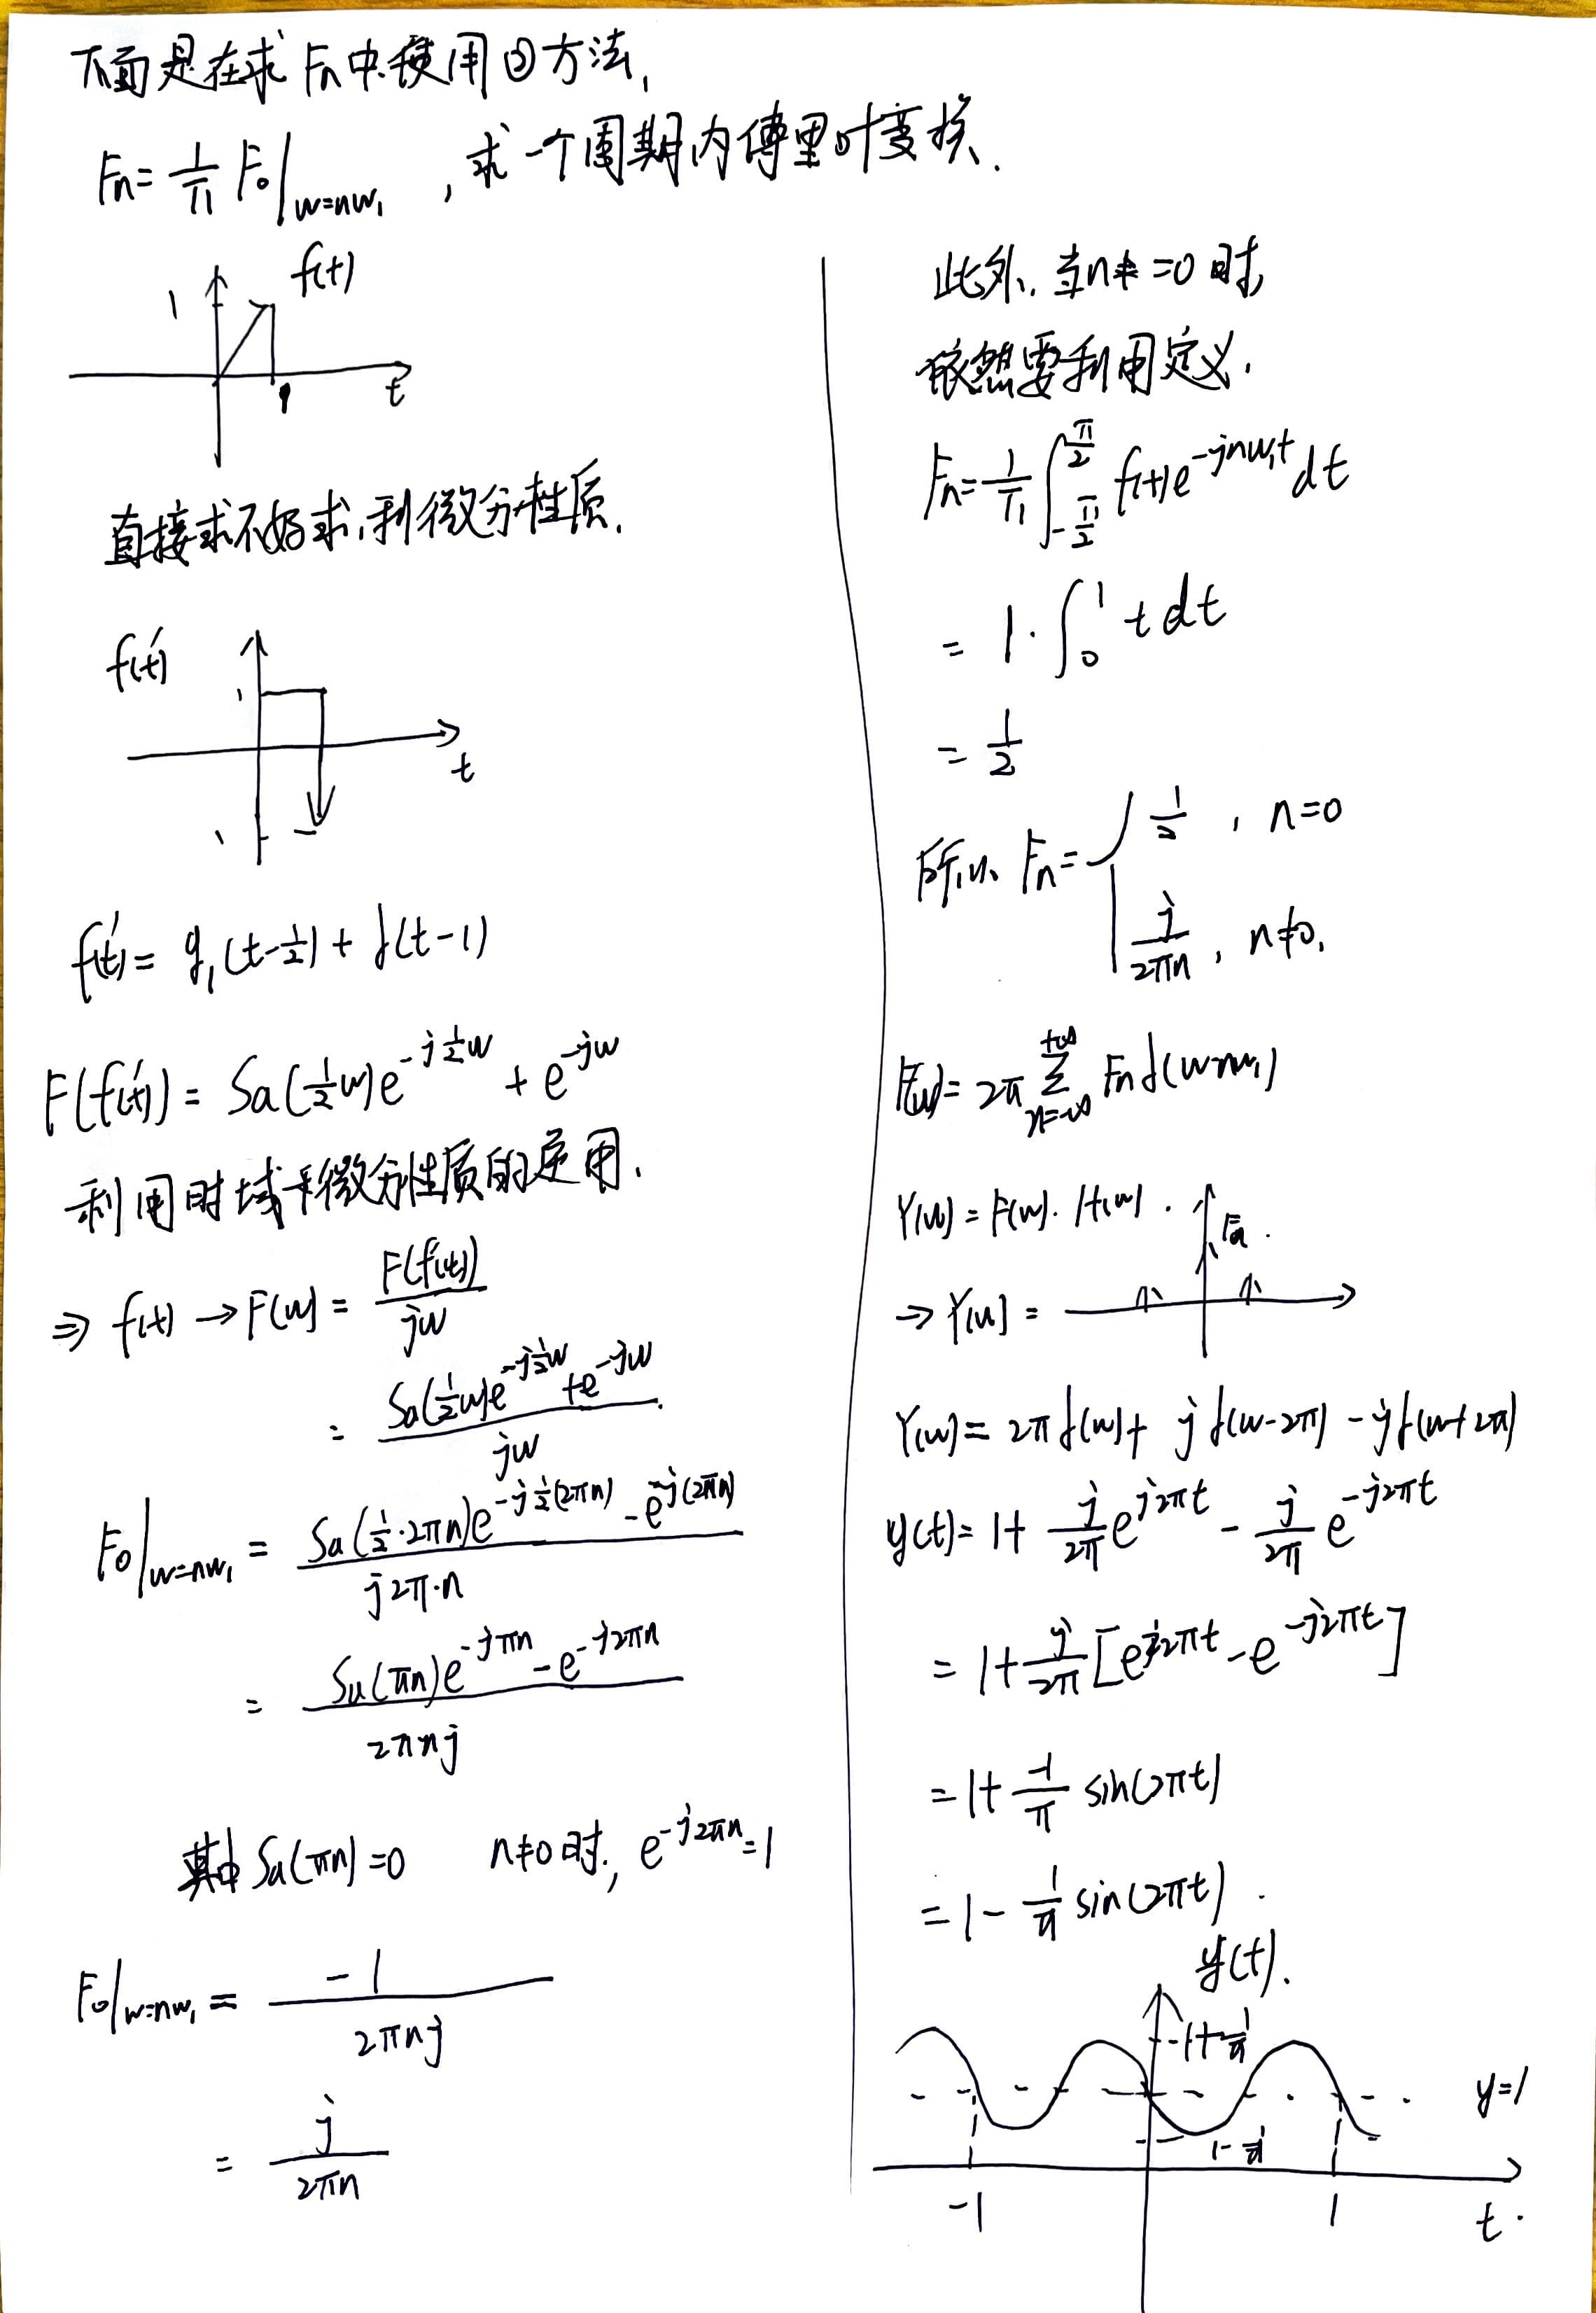 下面是在求 Fn 中使用②方法,
Fn = 1/T₁ F₀|w=nw₁ , 求一个周期内傅里叶变换.
f(t)
1
1
t
直接求不好求,利微分性质.
f'(t)
1
t
1
f'(t) = g₁(t-1/2) + δ(t-1)
F(f'(t)) = Sa(1/2w)e^(-j1/2w) + e^(-jw)
利用时域微分性质的逆用.
⇒ f(t) → F(w) = F(f'(t))/jw
= (Sa(1/2w)e^(-j1/2w) + e^(-jw))/jw
F₀|w=nw₁ = (Sa(1/2·2πn)e^(-j1/2(2πn)) - e^(-j(2πn)))/(j2π·n)
= (Sa(πn)e^(-jπn) - e^(-j2πn))/(2πnj)
其中 Sa(πn)=0 n≠0时, e^(-j2πn)=1
F₀|w=nw₁ = -1/(2πnj)
= j/(2πn)
此外, 当n=0时,
依然要利用定义.
Fn = 1/T₁ ∫_(-T₁/2)^(T₁/2) f(t)e^(-jnw₁t) dt
= 1·∫₀¹ t dt
= 1/2
所以 Fn = { 1/2 , n=0
j/(2πn) , n≠0.
F(w) = 2π Σ_(n=-∞)^(+∞) Fn δ(w-nw₁)
Y(w) = F(w)·H(w).
→ Y(w) =
Y(w) = 2πδ(w) + jδ(w-2π) - jδ(w+2π)
y(t) = 1 + j/2π e^(j2πt) - j/2π e^(-j2πt)
= 1 + j/2π [e^(j2πt) - e^(-j2πt)]
= 1 + -1/π sin(2πt)
= 1 - 1/π sin(2πt).
y(t).
1+1/π
y=1
1-1/π
-1
1
t.